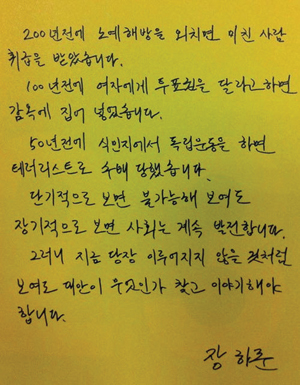 200년전에 노예해방을 외치면 미친 사람
취급을 받았습니다.
100년전에 여자에게 투표권을 달라고 하면
감옥에 집어 넣었습니다.
50년전에 식민지에서 독립운동을 하면
테러리스트로 수배 당했습니다.
단기적으로 보면 불가능해 보여도
장기적으로 보면 사회는 계속 발전합니다.
그러니 지금 당장 이루어지지 않을 것처럼
보여도 대안이 무엇인가 찾고 이야기해야
합니다.
장 하준